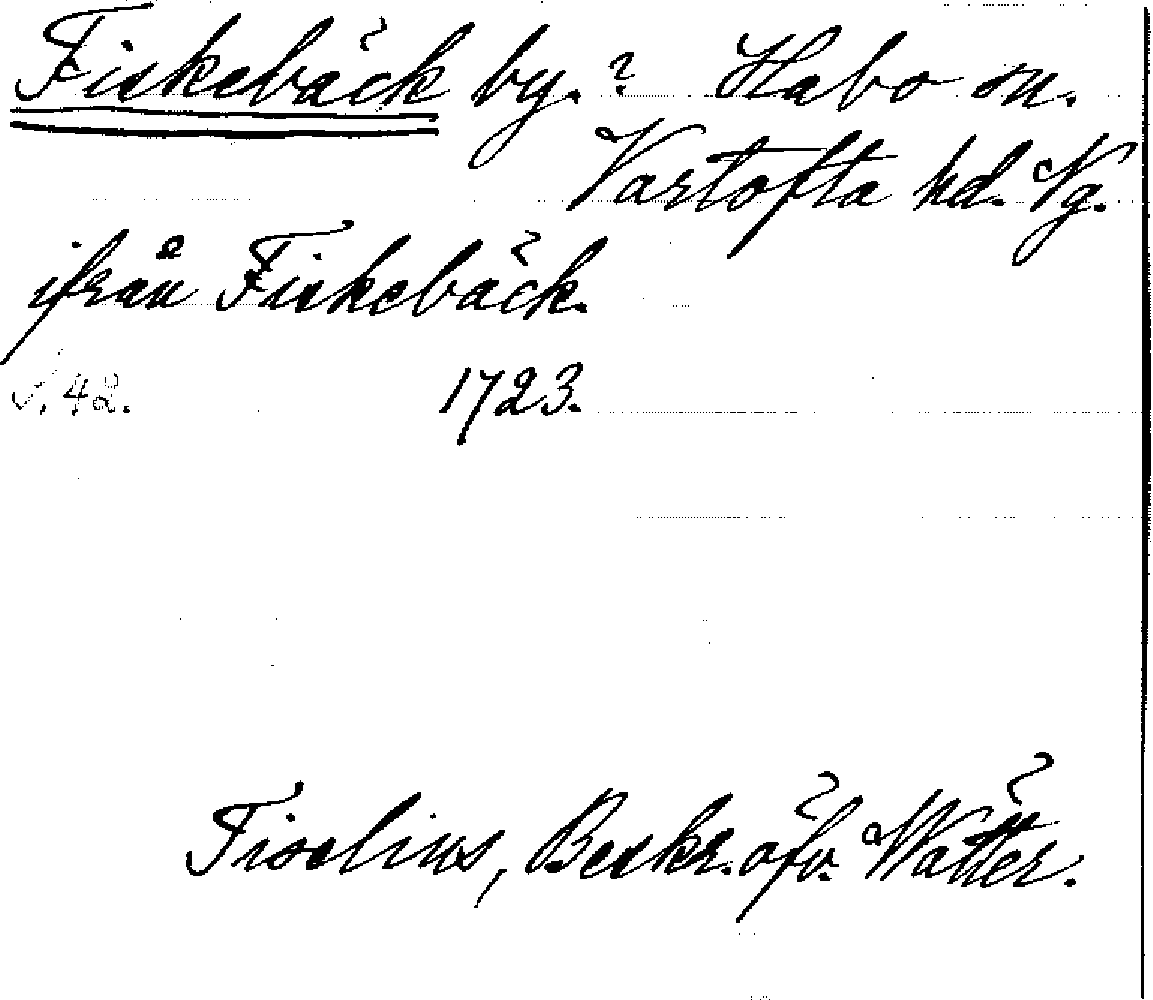 Fiskebäck by. ? Habo sn.
Vartofta hd. Vg.
ifrån Fiskebäck.
s. 42. 1723.
Tiselius, Beskr. öfv. Wätter.